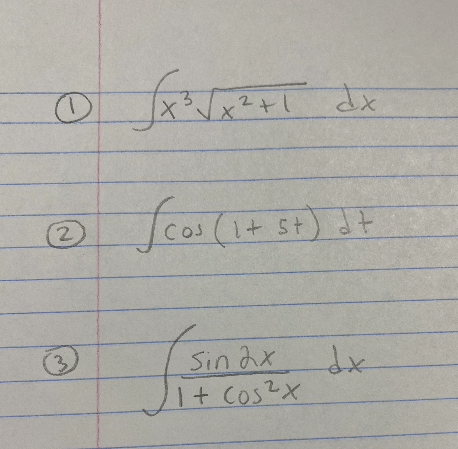 ① ∫x³√(x²+1) dx
② ∫cos(1+5t) dt
③ ∫ sin2x / (1+cos²x) dx